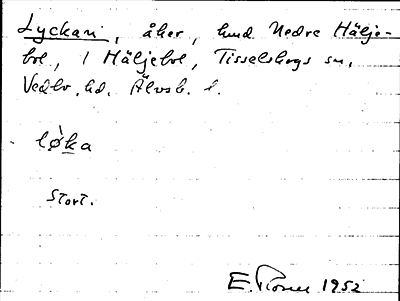 Lyckan, åker, hmd Nedre Hälje-
bol, 1 Häljebol, Tisselskogs sn,
Vedbo hd. Älvsb. l.
lø̀ka
stort.
E. 1952